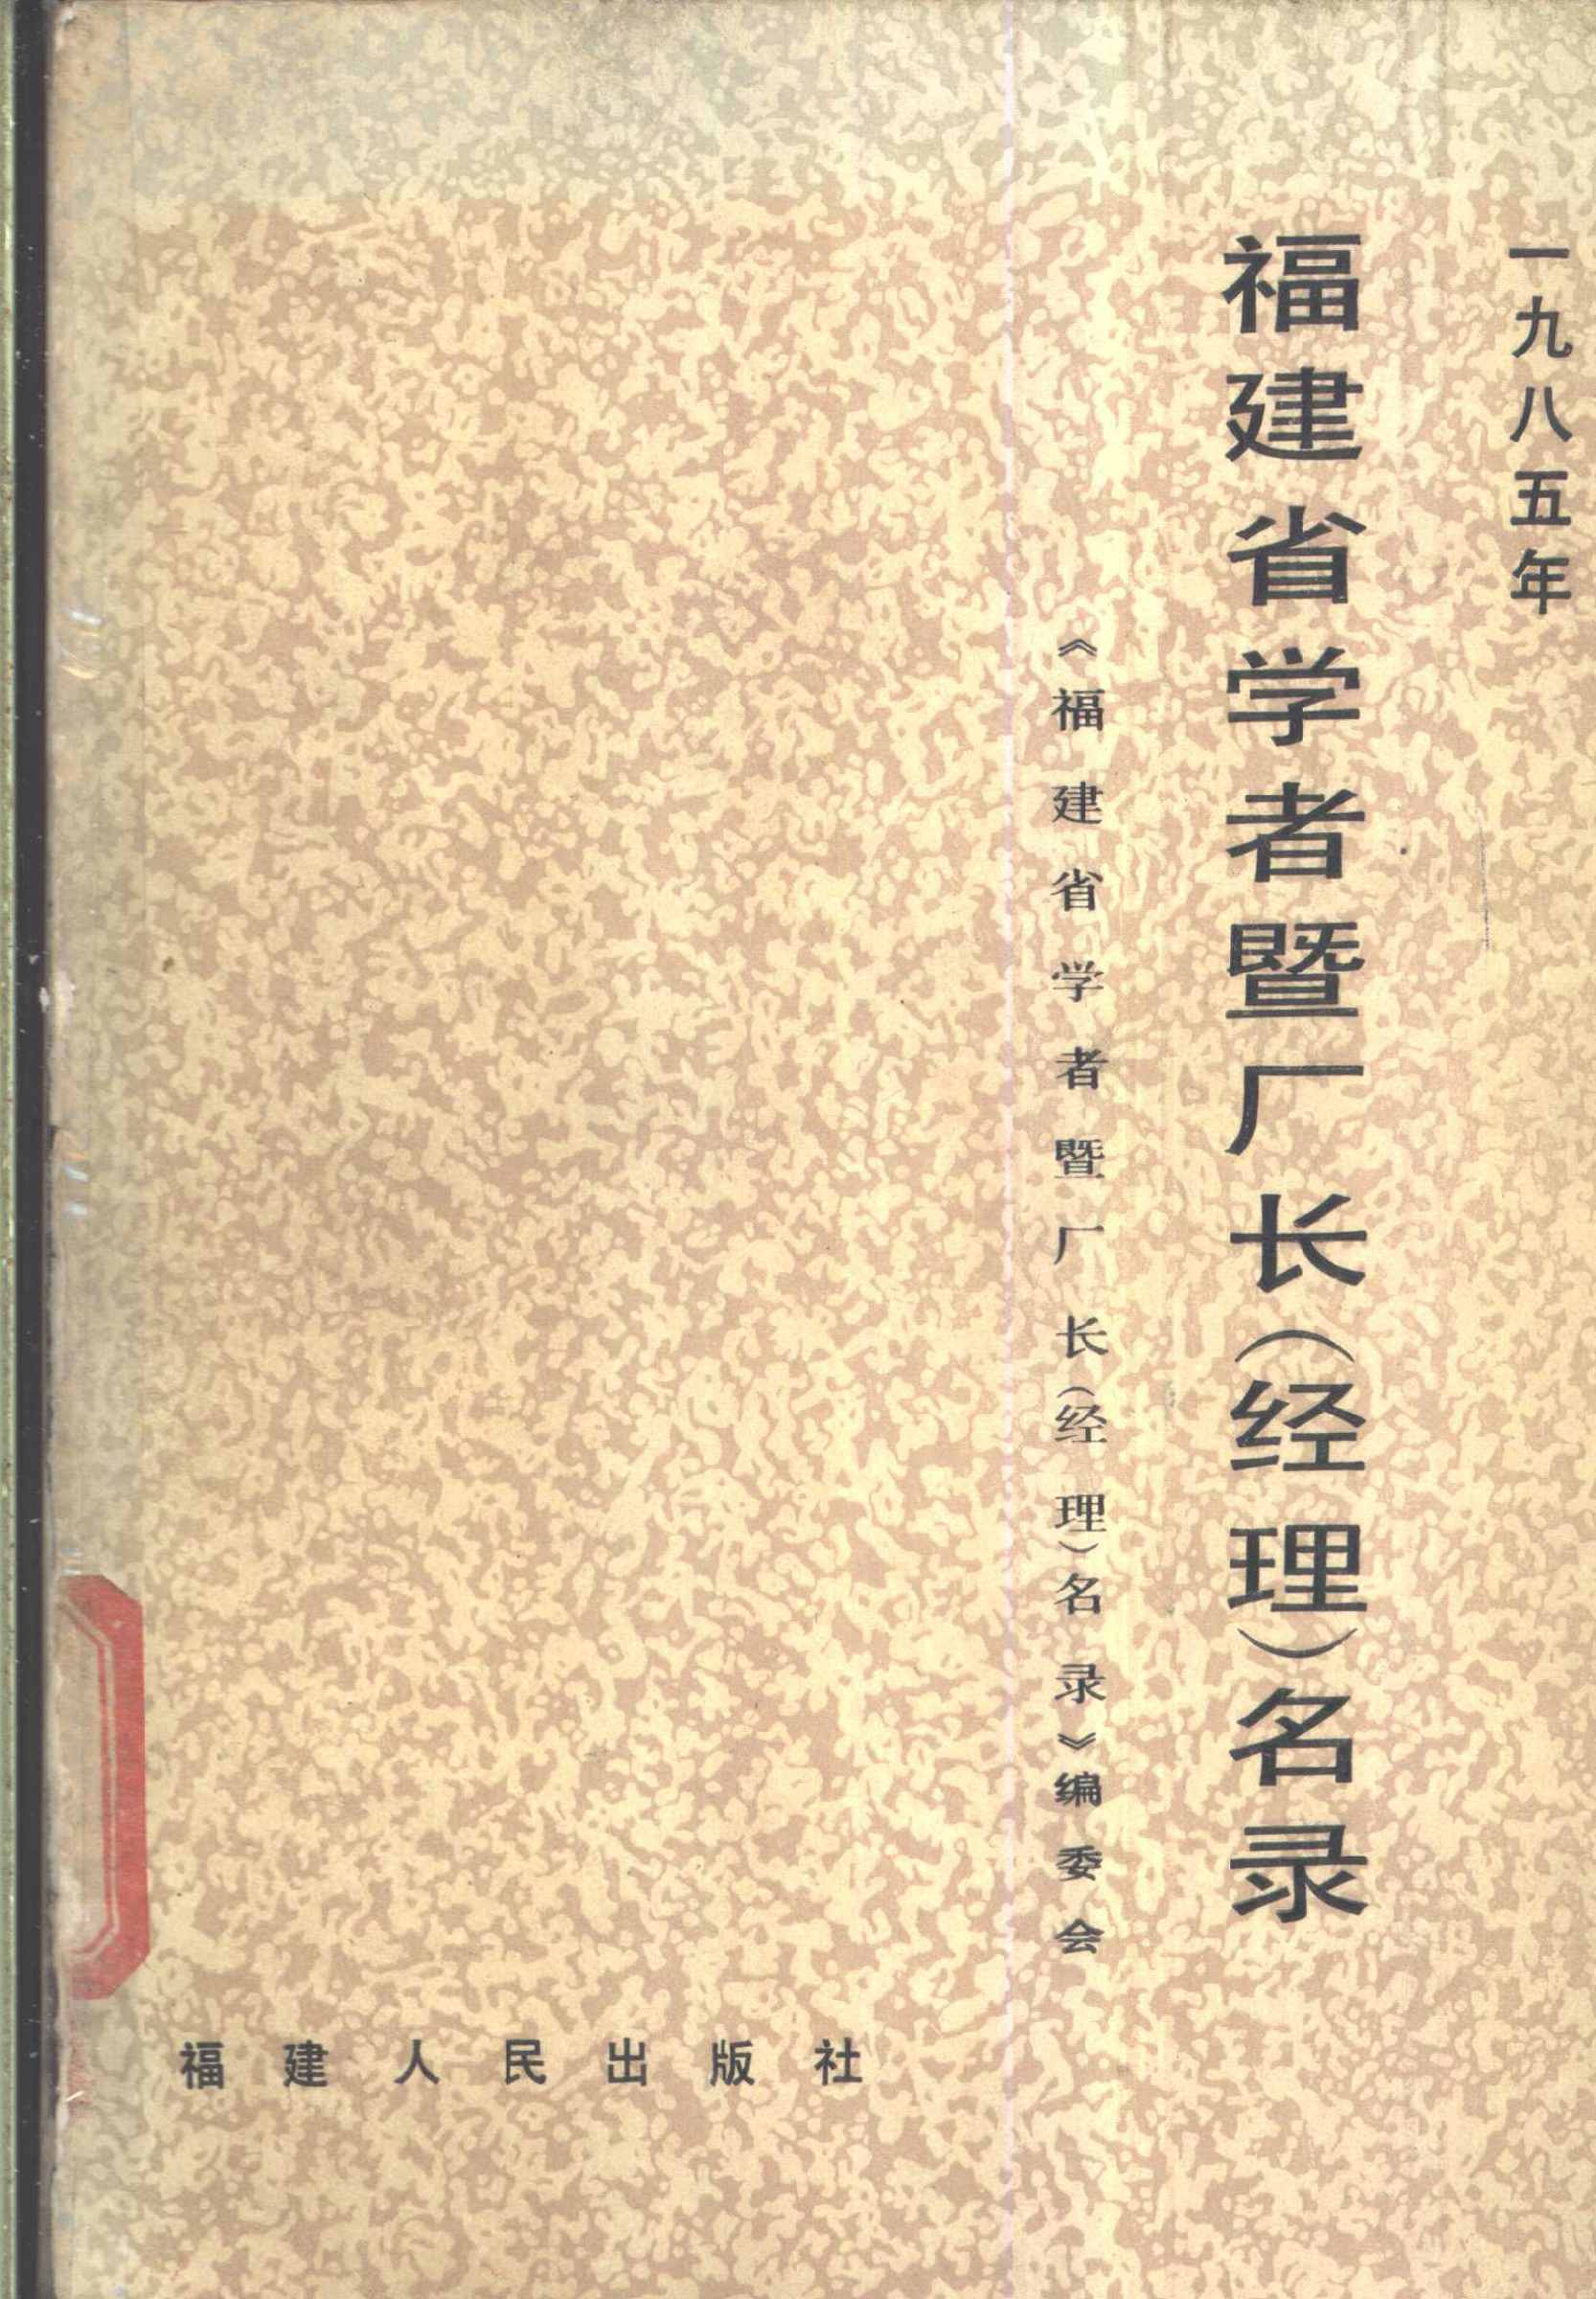 一九八五年
福建省学者暨厂长(经理)名录
《福建省学者暨厂长(经理)名录》编委会
福建人民出版社